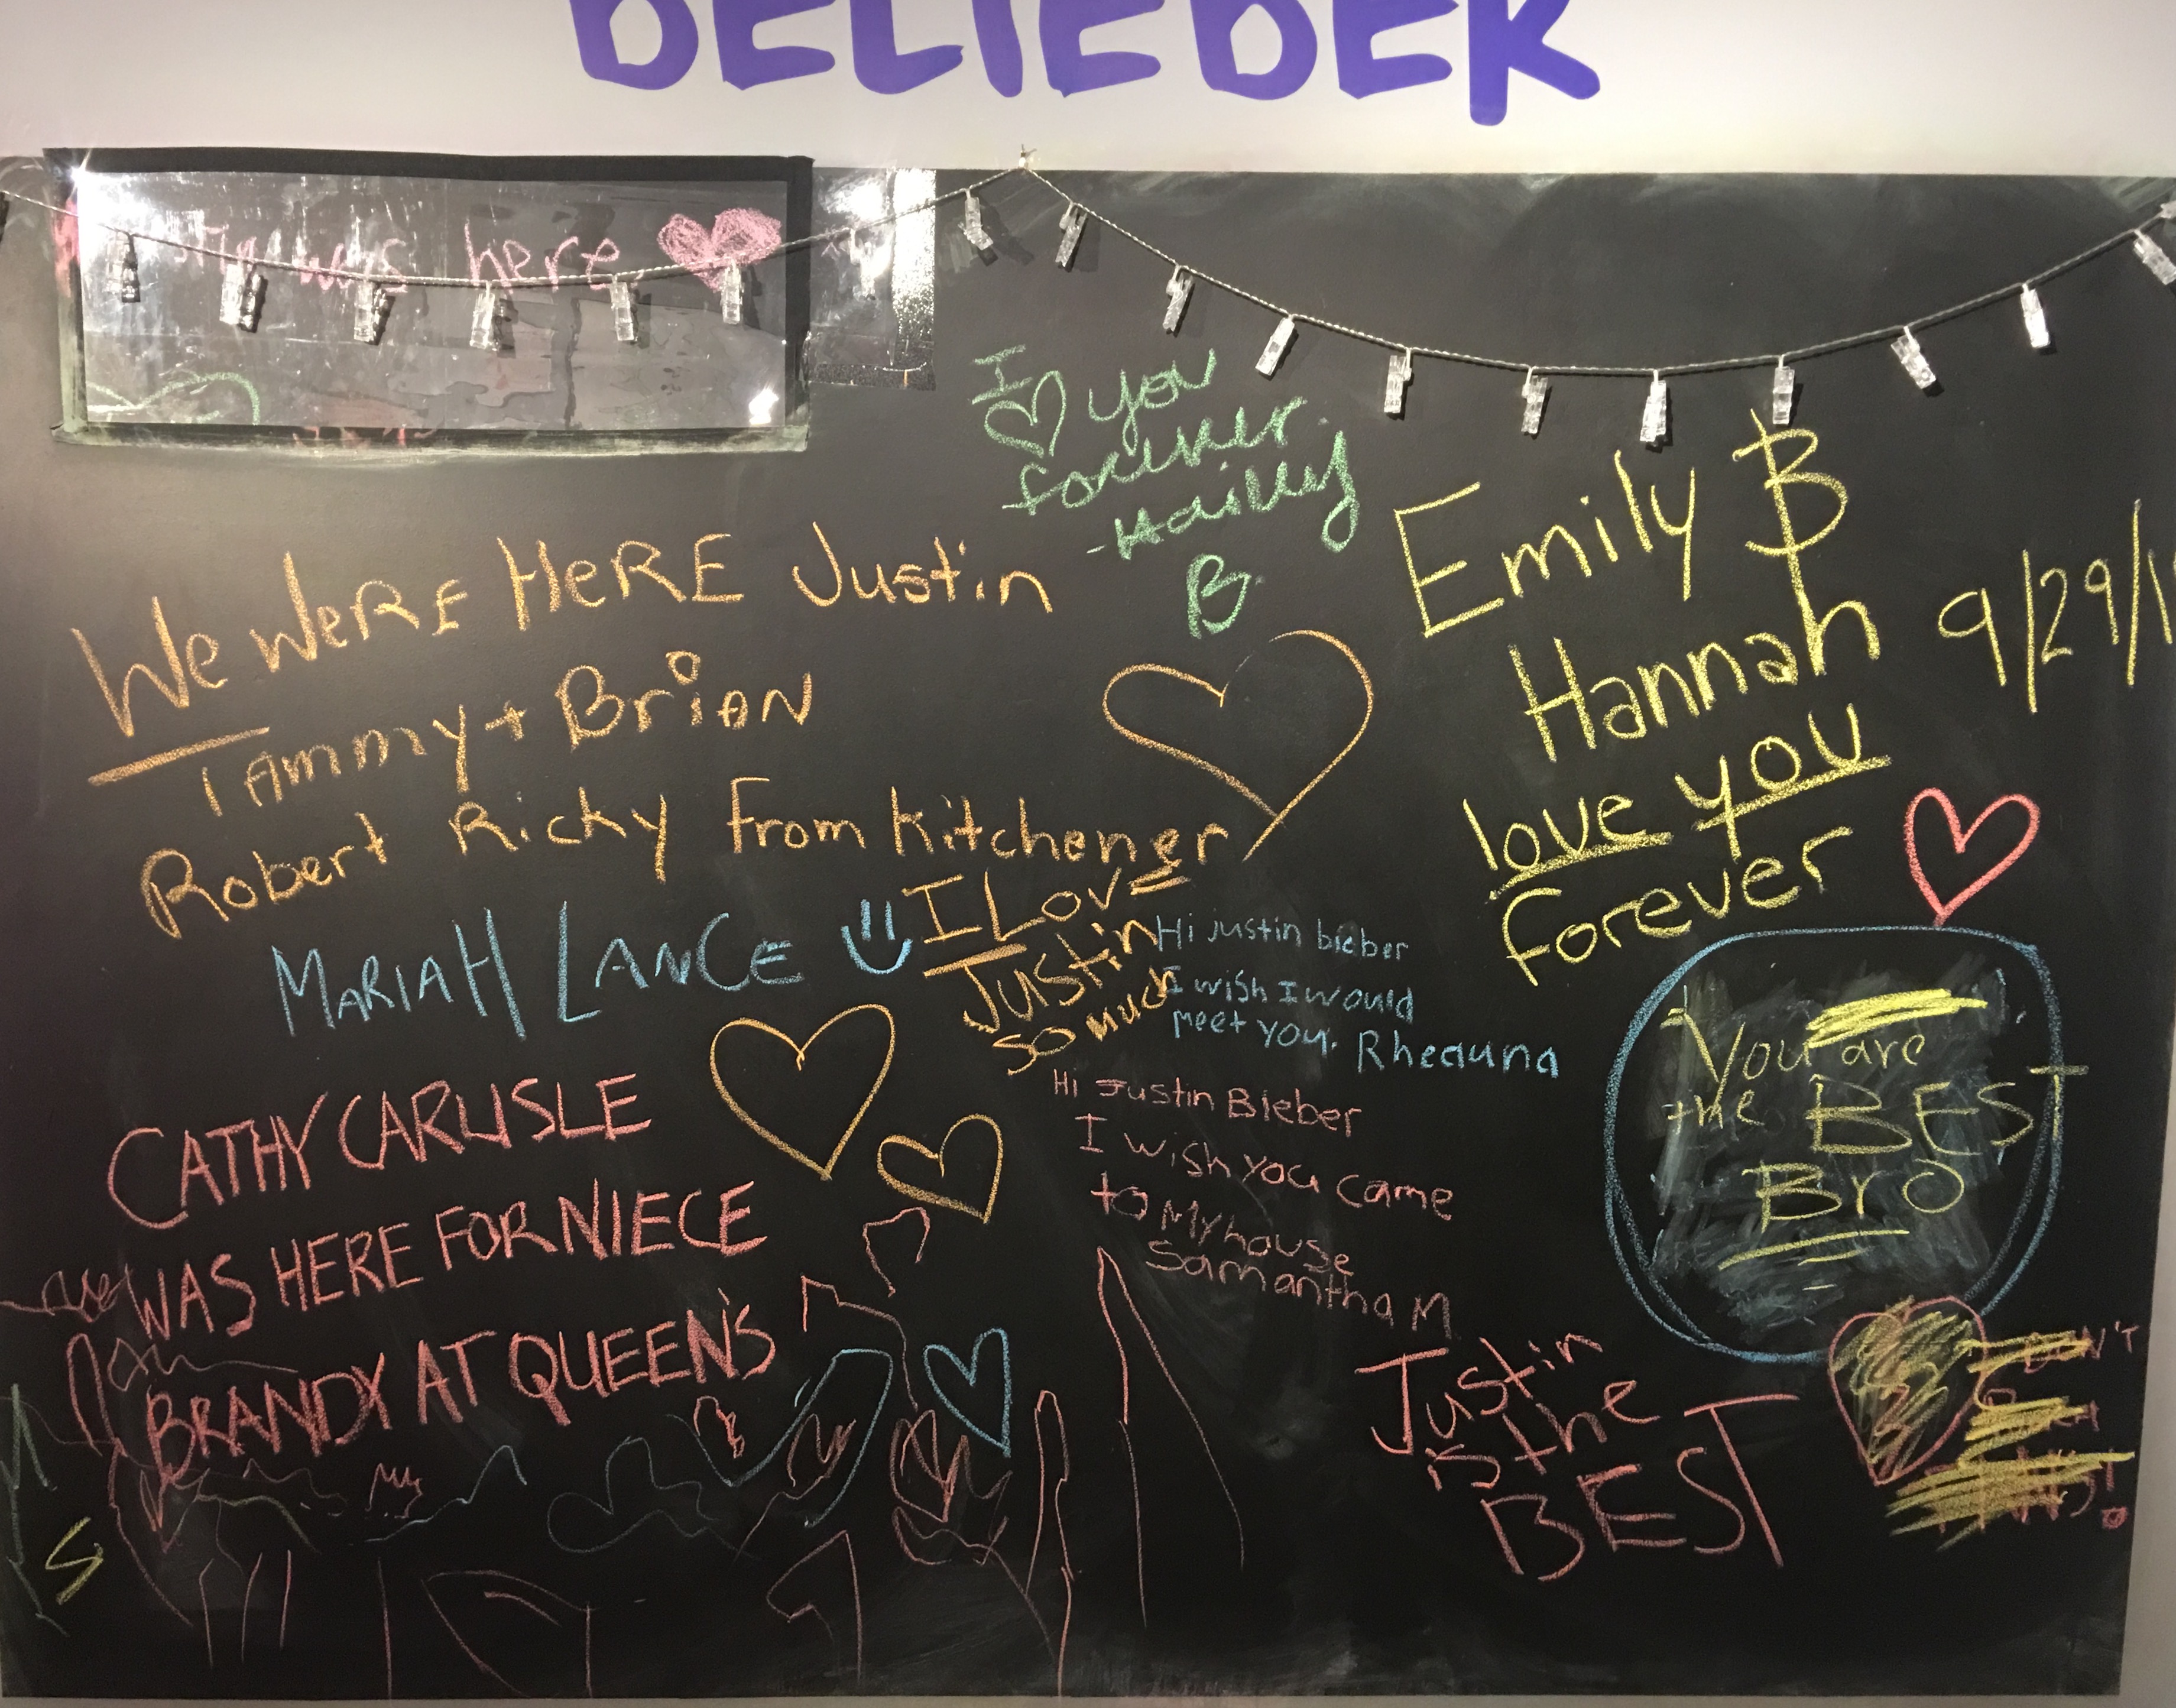 BELIEBER
was here
I ♡ you
forever
-Hailey
B
We WeRE HeRE Justin
Tammy + Brian
Robert Ricky From Kitchener
MARIAH LANCE
I Love
Justin
so much
Emily B
Hannah
love you
forever
9/29/1
Hi justin bieber
I wish I would
meet you. Rheauna
Hi Justin Bieber
I wish you came
to My house
Samantha M
You are
the BEST
Bro
CATHY CARLISLE
WAS HERE FOR NIECE
BRANDY AT QUEEN'S
Justin
is the
BEST